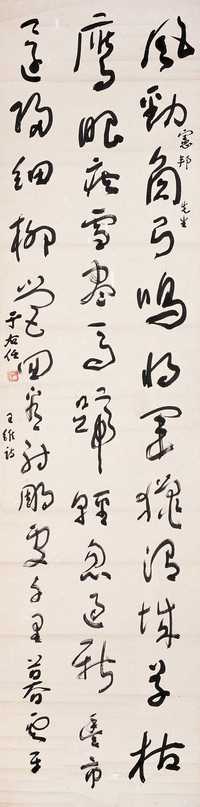 風勁角弓鳴將軍獵渭城草枯
鷹眼疾雪盡馬蹄輕忽過新豐市
還歸細柳營回看射鵰處千里暮雲平
憲邦先生
王維詩
于右任